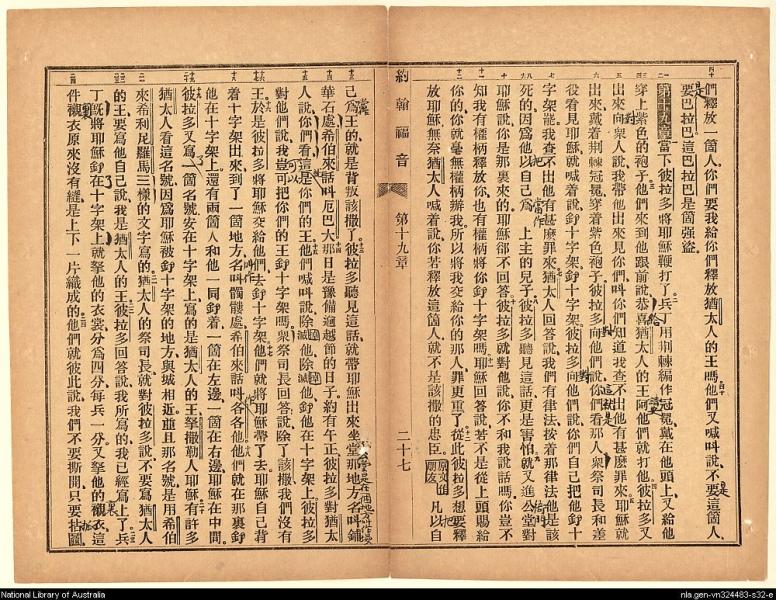 們釋放一箇人你們要我給你們釋放猶太人的王嗎他們又喊叫說不要這箇人
要巴拉巴這巴拉巴是箇強盜
第十九章當下彼拉多將耶穌鞭打了兵丁用荊棘編作冠冕戴在他頭上又給他
穿上紫色的袍子他們來到他跟前說恭喜猶太人的王阿他們就打他彼拉多又
出來向衆人說我帶他出來見你們叫你們知道我查不出他有甚麽罪來耶穌就
出來戴着荊棘冠冕穿着紫色袍子彼拉多向他們說你們看那人衆祭司長和差
役看見耶穌就喊着說釘十字架釘十字架彼拉多向他們說你們自己把他釘十
字架罷我查不出他有甚麽罪來猶太人回答說我們有律法按着那律法他是該
死的因爲他以自己爲上主的兒子彼拉多聽見這話更是害怕就又進公堂對
耶穌說你是那裏來的耶穌卻不回答彼拉多就對他說你不和我說話嗎你豈不
知我有權柄釋放你也有權柄將你釘十字架嗎耶穌回答說若不是從上頭賜給
你的你就毫無權柄辦我所以將我交給你的那人罪更重了從此彼拉多想要釋
放耶穌無奈猶太人喊着說你若釋放這箇人就不是該撒的忠臣原文作朋友凡以自
約翰福音 第十九章 二十七
己爲王的就是背叛該撒了彼拉多聽見這話就帶耶穌出來坐堂那地方名叫鋪
華石處希伯來話叫厄巴大那日是豫備逾越節的日子約有午正彼拉多對猶太
人說你們看這是你們的王他們喊叫說除滅他除滅他釘他在十字架上彼拉多
對他們說我豈可把你們的王釘十字架嗎衆祭司長回答說除了該撒我們沒有
王於是彼拉多將耶穌交給他們去釘十字架他們就將耶穌帶了去耶穌自己背
着十字架出來到了一箇地方名叫髑髏處希伯來話叫各各他他們就在那裏釘
他在十字架上還有兩箇人和他一同釘着一箇在左邊一箇在右邊耶穌在中間
彼拉多又寫一箇名號安在十字架上寫的是猶太人的王拏撒勒人耶穌有許多
猶太人看這名號因爲耶穌被釘十字架的地方與城相近並且那名號是用希伯
來希利尼羅馬三樣的文字寫的猶太人的祭司長就對彼拉多說不要寫猶太人
的王要寫他自己說我是猶太人的王彼拉多回答說我所寫的我已經寫上了兵
丁旣將耶穌釘在十字架上就拏他的衣裳分爲四分每兵一分又拏他的襯衣這
件襯衣原來沒有縫是上下一片織成的他們就彼此說我們不要撕開只要拈鬮
National Library of Australia
nla.gen-vn324483-s32-e